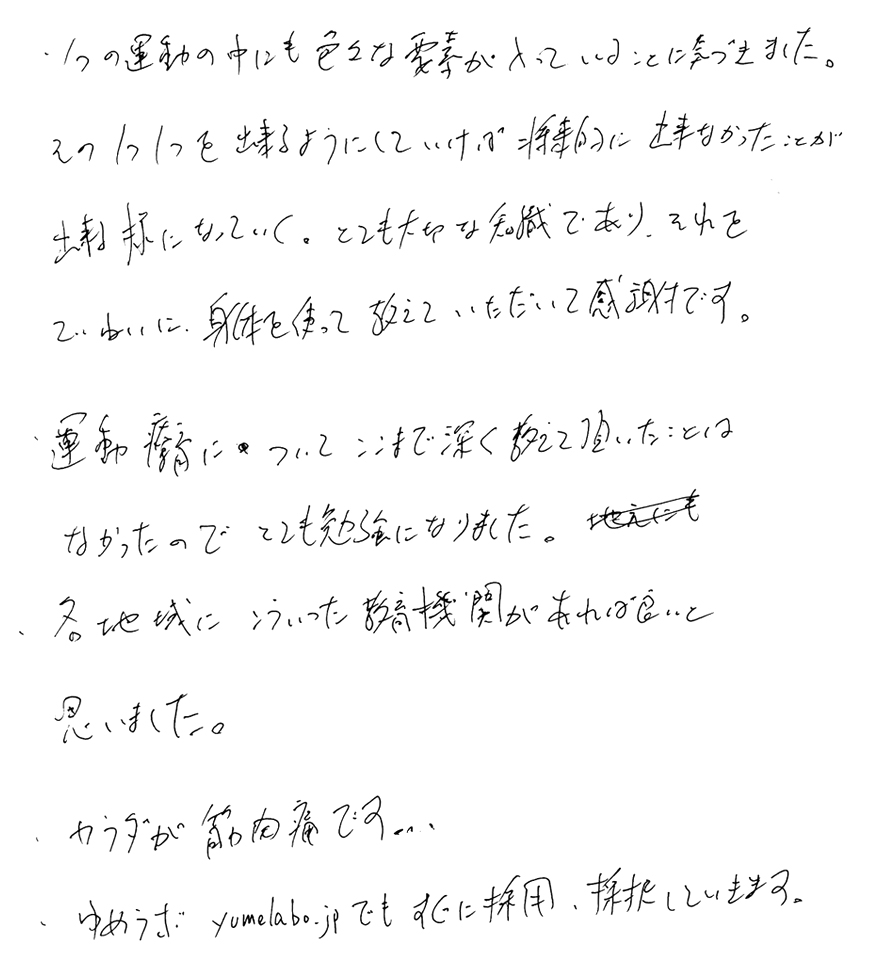 ・1つの運動の中にも色々な要素が入っていることに気づきました。
その1つ1つを出来るようにしていけば将来的に出来なかったことが
出来る様になっていく。とても大切な知識であり、それを
ていねいに、身体を使って教えていただいて感謝です。
・運動療育についてここまで深く教えて頂いたことは
なかったのでとても勉強になりました。地元にも
・各地域にこういった教育機関があれば良いと
思いました。
・カラダが筋肉痛です...
・ゆめラボ yumelabo.jpでもすぐに採用、採択していきます。